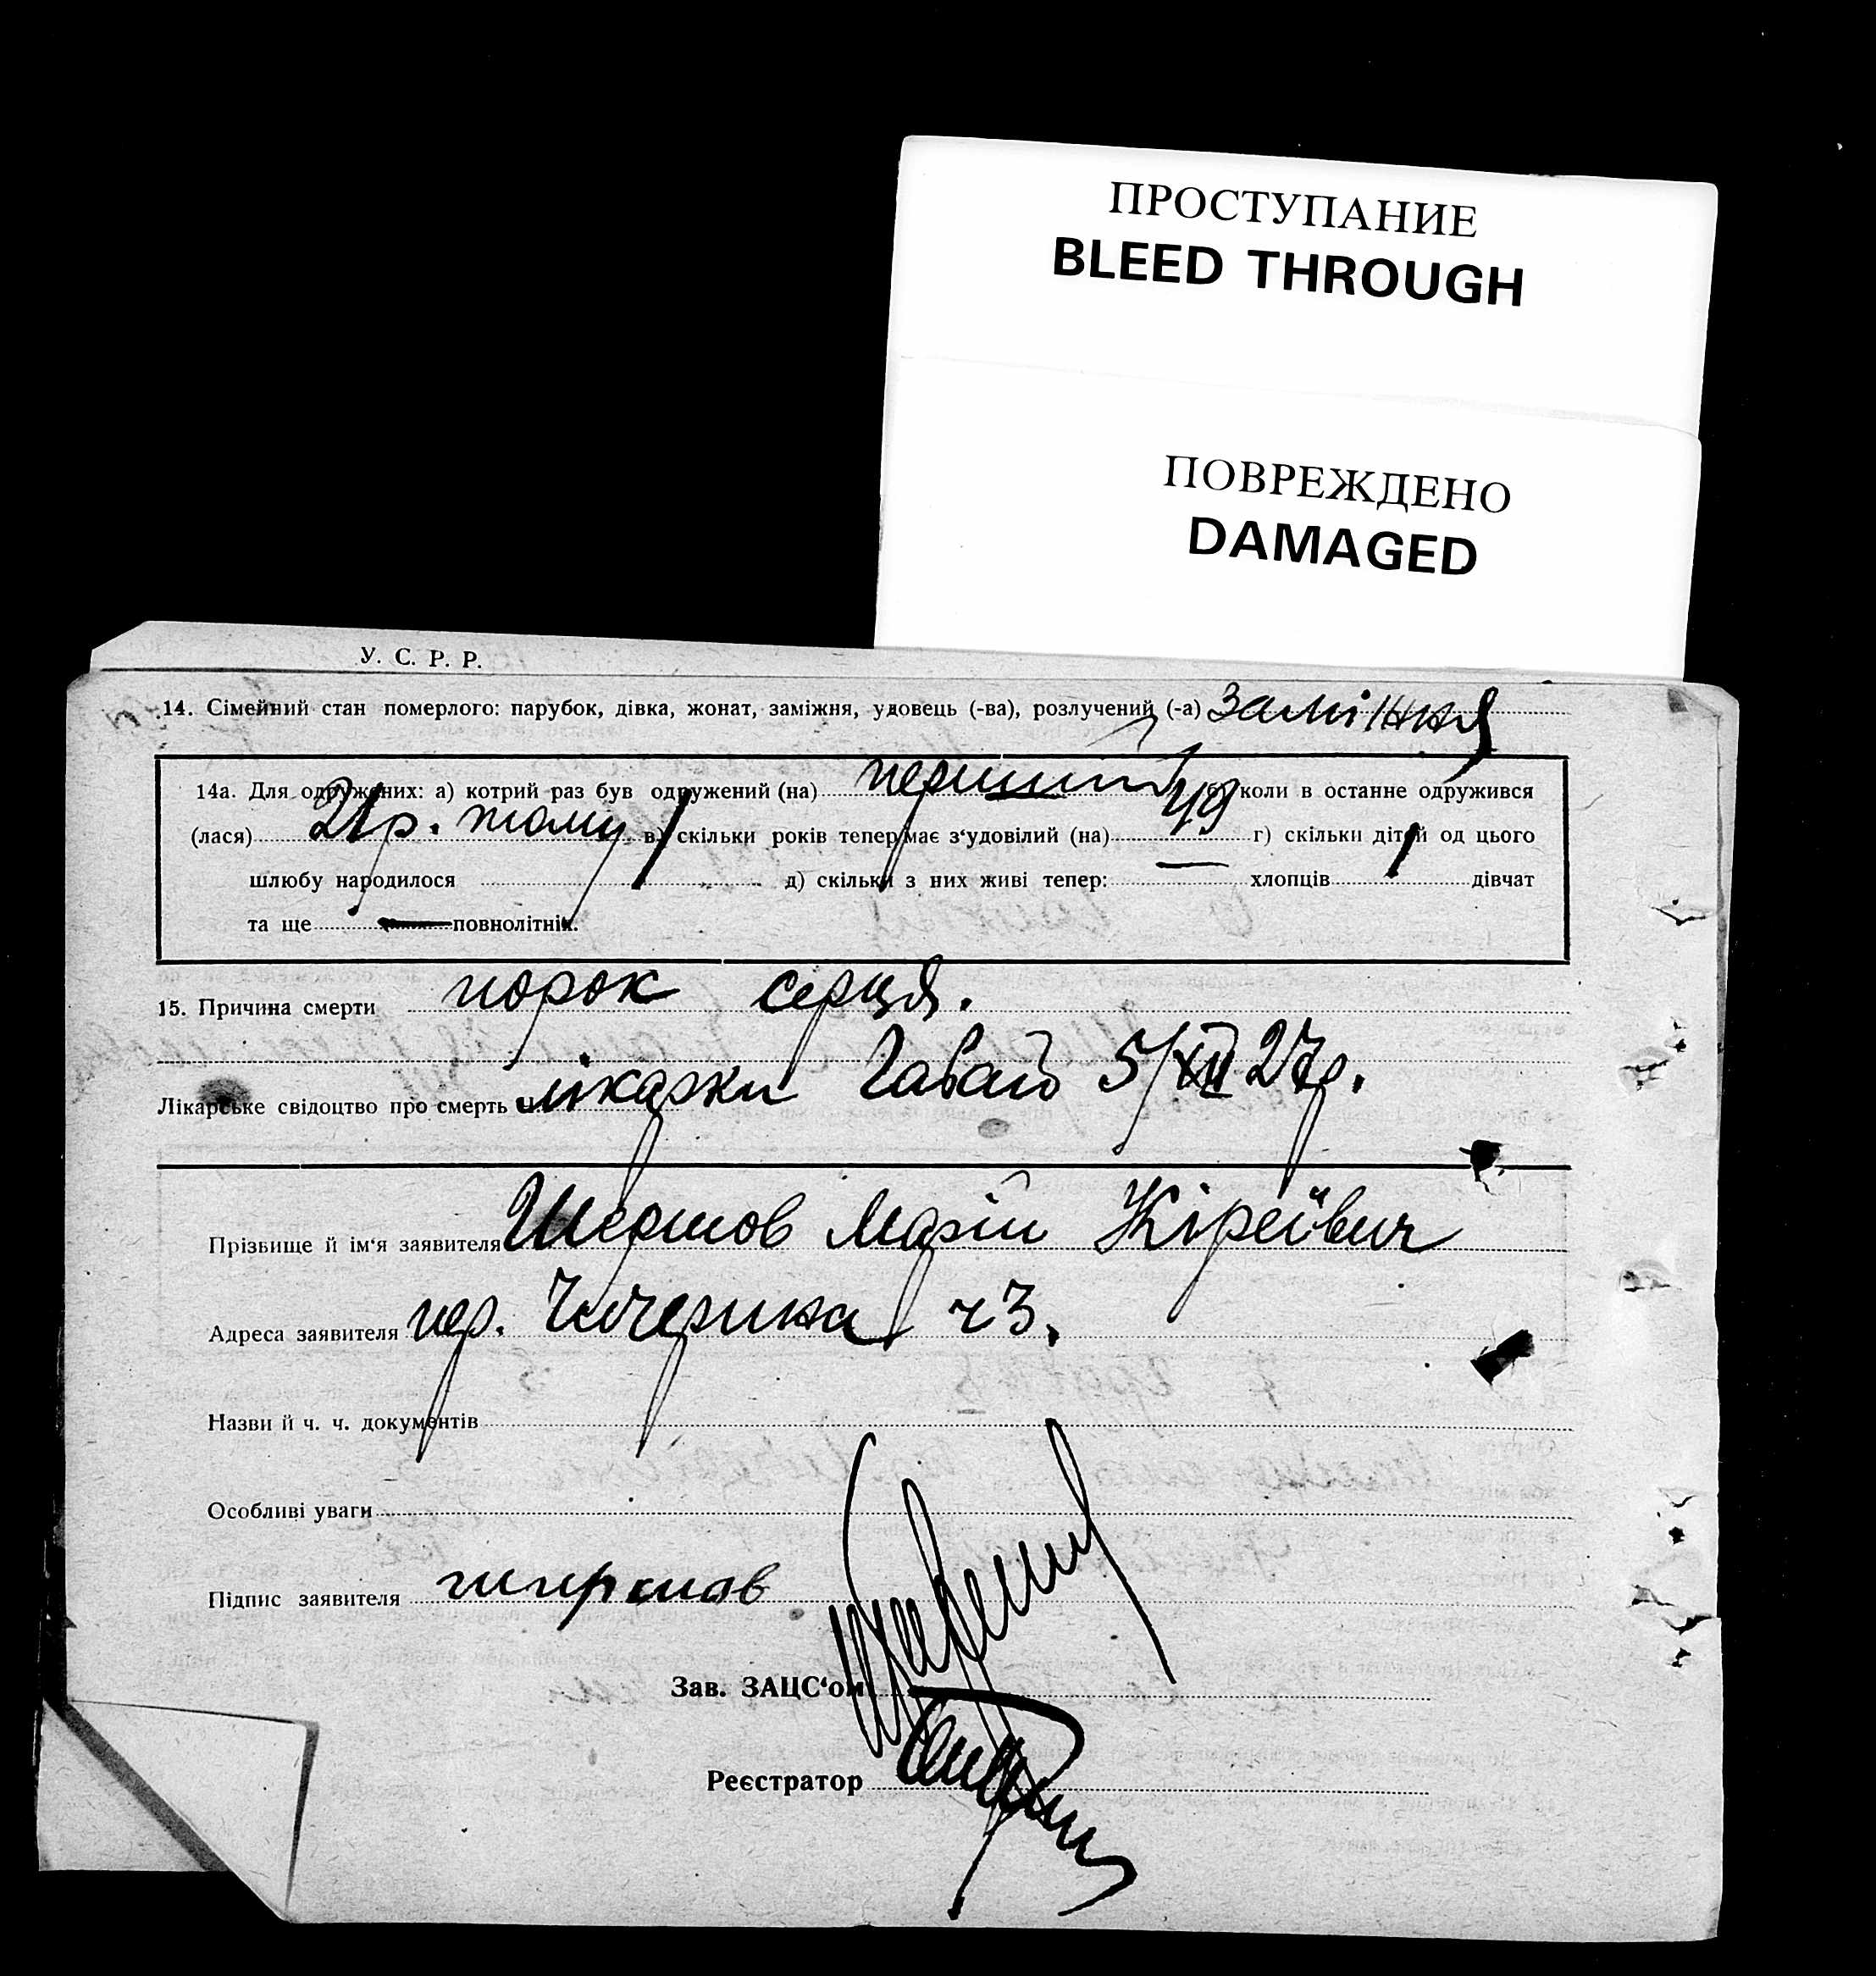 ПРОСТУПАНИЕ
BLEED THROUGH
ПОВРЕЖДЕНО
DAMAGED
У. С. Р. Р.
14. Сімейний стан померлого: парубок, дівка, жонат, заміжня, удовець (-ва), розлучений (-а) заміжня
14а. Для одружених: а) котрий раз був одружений (на) перший б) коли в останне одружився
(лася) 21 р. тому в) скільки років тепер має з'удовілий (на) 49 г) скільки дітей од цього
шлюбу народилося 1 д) скільки з них живі тепер: — хлопців 1 дівчат
та ще — повнолітніх.
15. Причина смерти порок серця.
Лікарське свідоцтво про смерть ч. лікарки 5/XII 27 р.
Прізвище й ім'я заявителя Шершов Марій Кірейвич
Адреса заявителя пер. Чичерина ч 3.
Назви й ч. ч. документів
Особливі уваги
Підпис заявителя шершов
Зав. ЗАЦС'ом
Реєстратор